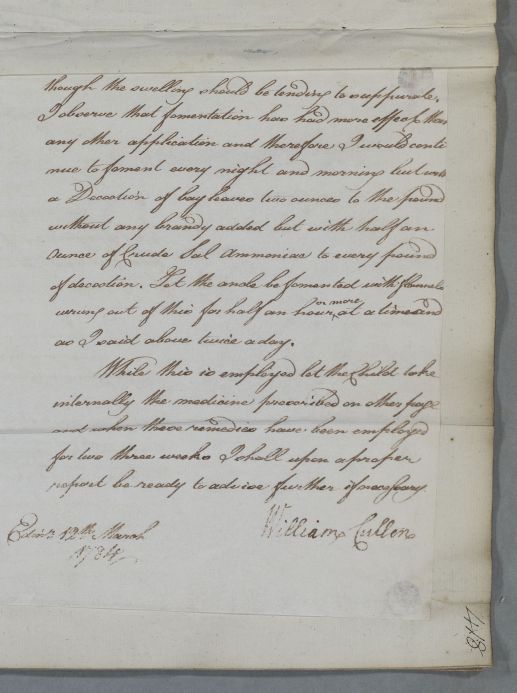 though the swelling should be tending to suppurate.
I observe that fomentation has had more effect than
any other application and therefore I would conti
nue to foment every night and morning but with
a Decoction of bay leaves two ounces to the pound
without any brandy added but with half an
ounce of Crude Sal Ammoniac to every pound
of decoction. Let the ancle be fomented with flannels
wrung out of this for half an hour or more at a time and
as I said above twice a day.
While this is employed let the Child take
internally the medicine prescribed on other page
and when these remedies have been employed
for two three weeks I shall upon a proper
report be ready to advise further if necessary
William Cullen
Edinr 12th March
1784
448